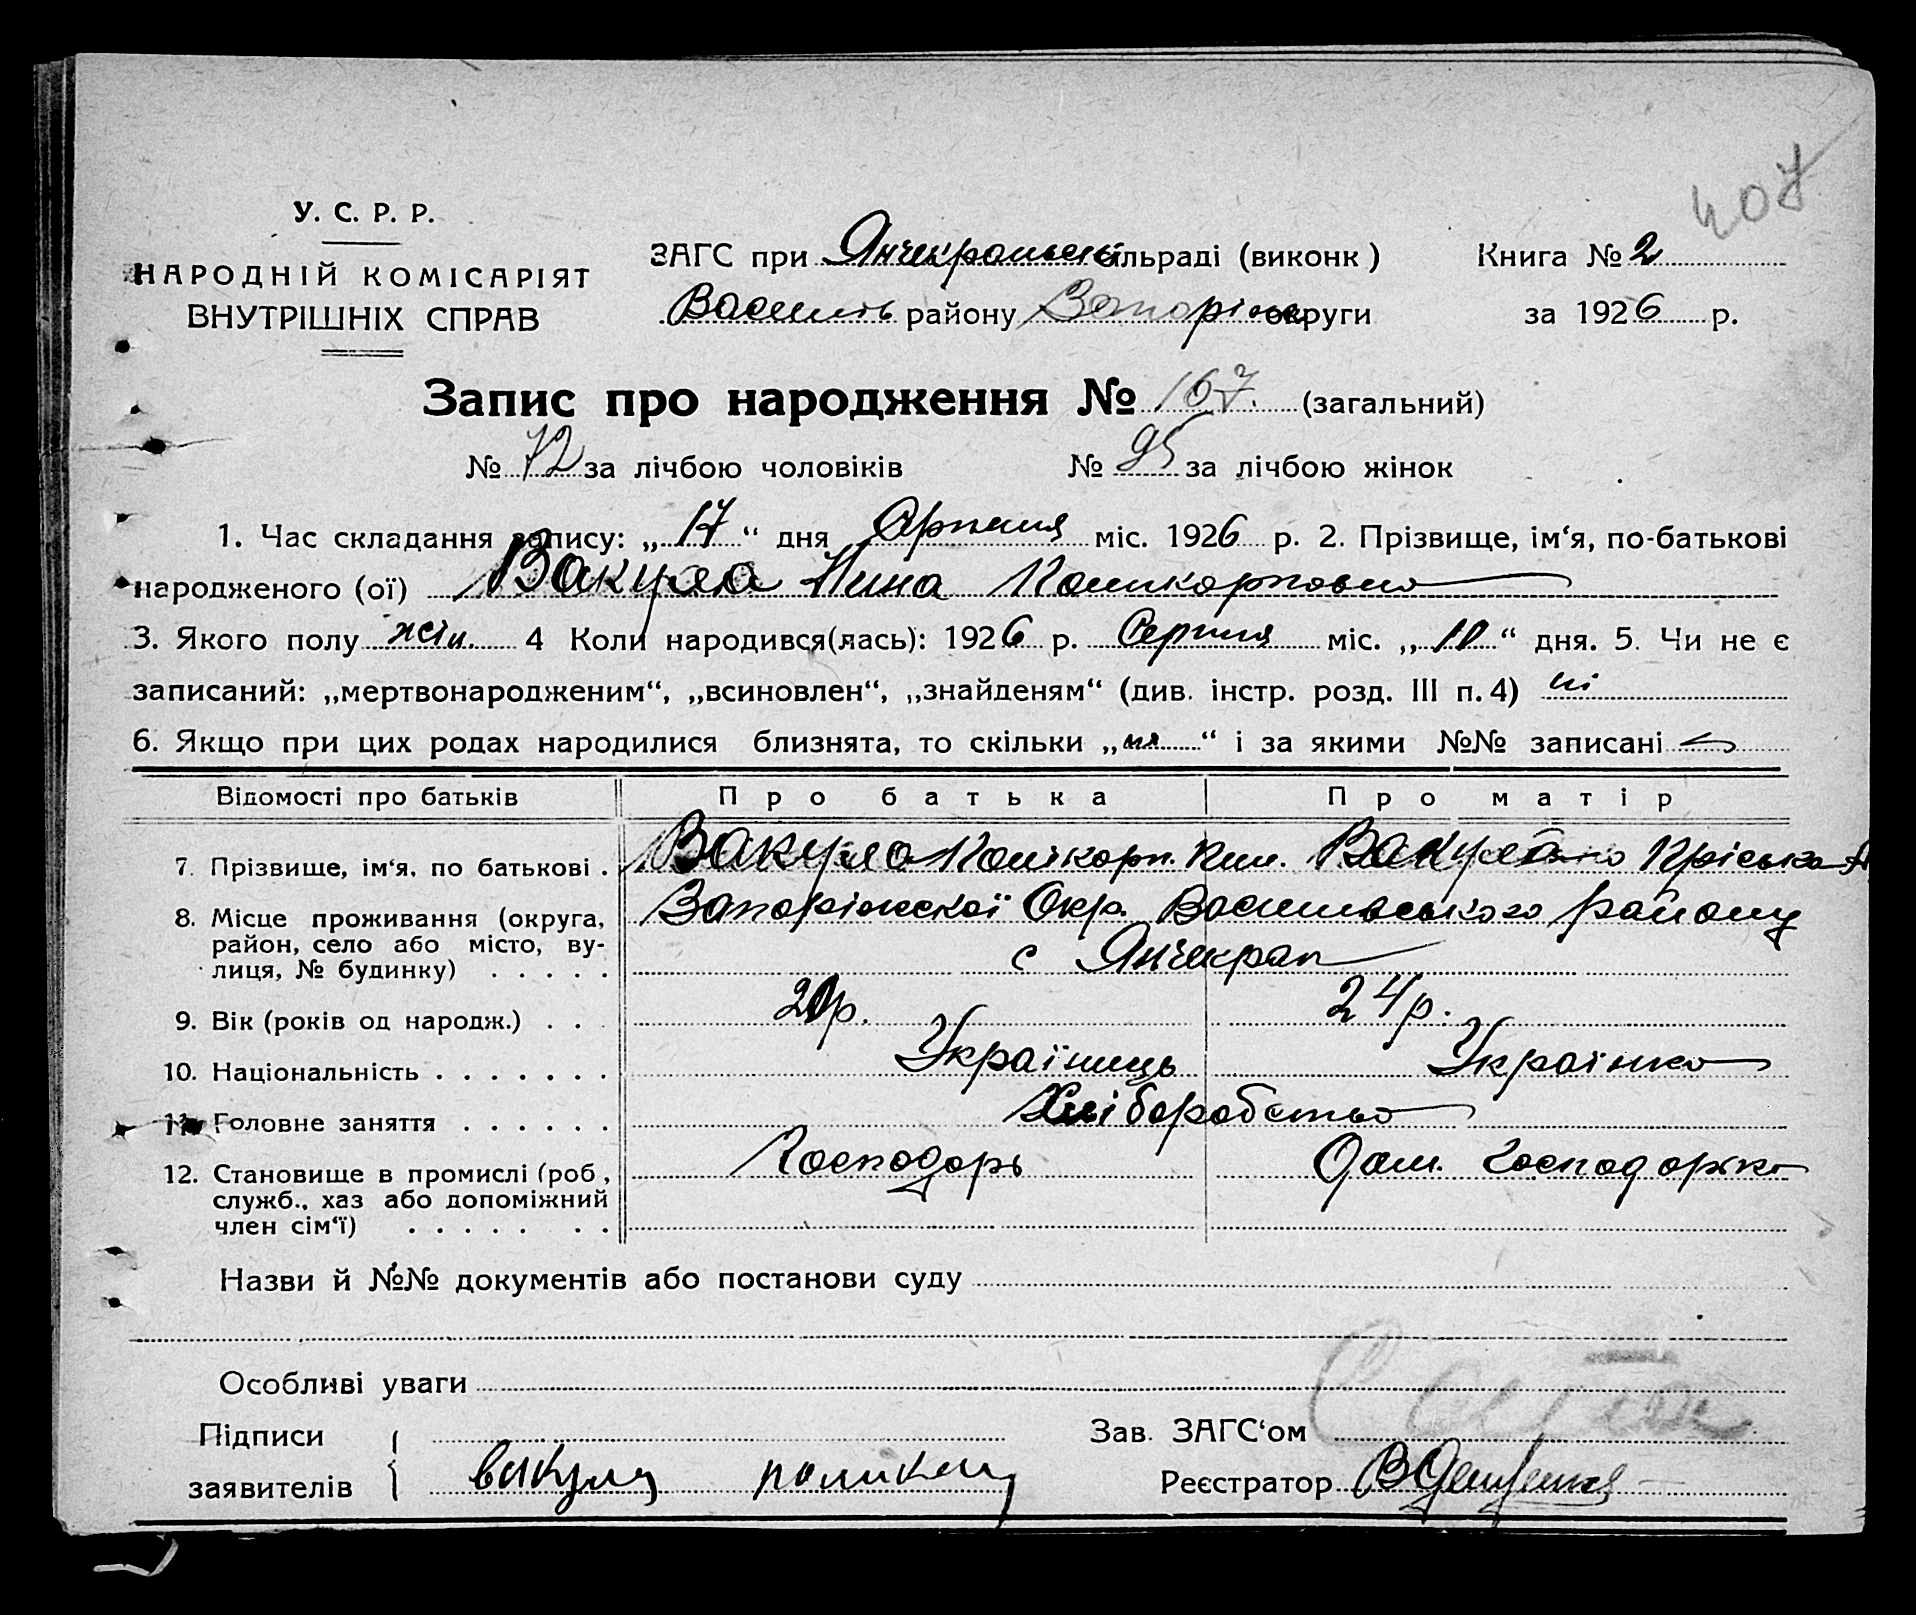 407
У. С. Р. Р.
НАРОДНІЙ КОМІСАРІЯТ
ВНУТРІШНІХ СПРАВ
ЗАГС при Янчекральск сільраді (виконк)
Василів району Запоріж округи
Книга № 2
за 1926 р.
Запис про народження № 167. (загальний)
№ 72 за лічбою чоловіків № 95 за лічбою жінок
1. Час складання запису: „17“ дня Серпня міс. 1926 р. 2. Прізвище, ім‘я, по-батькові
народженого (ої) Вакула Нина Поликарповна
3. Якого полу жін. 4 Коли народився(лась): 1926 р. Серпня міс. „10“ дня. 5. Чи не є
записаний: „мертвонародженим“, „всиновлен“, „знайденям“ (див. інстр. розд. III п. 4) ні
6. Якщо при цих родах народилися близнята, то скільки „ “ і за якими №№ записані
Відомості про батьків Про батька Про матір
7. Прізвище, ім‘я, по батькові . Вакула Поликарп. Вакула Пріська
8. Місце проживання (округа, Запоріжскої Окр. Василівського району
район, село або місто, ву- с Янчекрак
лиця, № будинку) . . . . .
9. Вік (років од народж.) . . . р. 24 р.
10. Національність . . . . . . . Україниць Українка
11. Головне заняття . . . . . . Хліборобство
12. Становище в промислі (роб, Господарь Дом. господарка
служб., хаз або допоміжний
член сім‘ї) . . . . . . .
Назви й №№ документів або постанови суду
Особливі уваги
Підписи
заявителів вакула
Зав. ЗАГС‘ом
Реєстратор